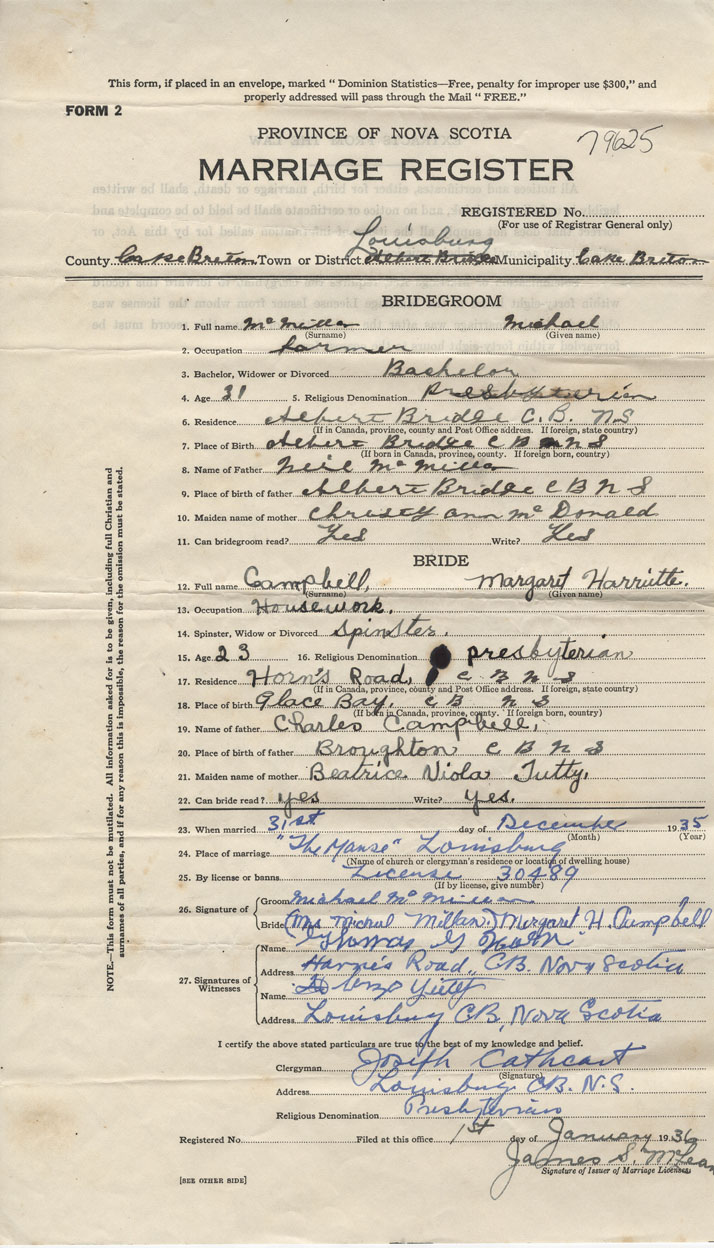 This form, if placed in an envelope, marked “ Dominion Statistics—Free, penalty for improper use $300,” and
properly addressed will pass through the Mail “ FREE.”
FORM 2
PROVINCE OF NOVA SCOTIA
79625
MARRIAGE REGISTER
REGISTERED No.
(For use of Registrar General only)
Louisburg
County Cape Breton Town or District Albert Bridge Municipality Cape Breton
BRIDEGROOM
1. Full name McMillan Michael
(Surname) (Given name)
2. Occupation Farmer
3. Bachelor, Widower or Divorced Bachelor
4. Age 31 5. Religious Denomination Presbyterian
6. Residence Albert Bridge C.B. NS
(If in Canada, province, county and Post Office address. If foreign, state country)
7. Place of Birth Albert Bridge C B N S
(If born in Canada, province, county. If foreign born, country)
8. Name of Father Neil McMillan
9. Place of birth of father Albert Bridge C B N S
10. Maiden name of mother Christy Ann McDonald
11. Can bridegroom read? Yes Write? Yes
BRIDE
12. Full name Campbell, Margaret Harriette.
(Surname) (Given name)
13. Occupation Housework.
14. Spinster, Widow or Divorced Spinster.
15. Age 23 16. Religious Denomination presbyterian
17. Residence Horn's Road, C B N S
(If in Canada, province, county and Post Office address. If foreign, state country)
18. Place of birth Glace Bay, C B N S
(If born in Canada, province, county. If foreign born, country)
19. Name of father Charles Campbell,
20. Place of birth of father Broughton C B N S
21. Maiden name of mother Beatrice Viola Tutty,
22. Can bride read? yes Write? yes.
23. When married 31st day of December 1935
(Month) (Year)
24. Place of marriage "The Manse" Louisburg
(Name of church or clergyman's residence or location of dwelling house)
25. By license or banns License 30489
(If by license, give number)
26. Signature of
Groom Michael McMillan
Bride (Mrs Michael Millan) Margaret H. Campbell
27. Signatures of Witnesses
Name Thomas G
Address Road, C.B. Nova Scotia
Name
Address Louisburg C.B, Nova Scotia
I certify the above stated particulars are true to the best of my knowledge and belief.
Clergyman Joseph Cathcart
(Signature)
Address Louisburg C.B. N.S.
Religious Denomination Presbyterian
Registered No. Filed at this office 1st day of January 1936
James S. McLean
Signature of Issuer of Marriage Licenses
[SEE OTHER SIDE]
NOTE.—This form must not be mutilated. All information asked for is to be given, including full Christian and
surnames of all parties, and if for any reason this is impossible, the reason for the omission must be stated.